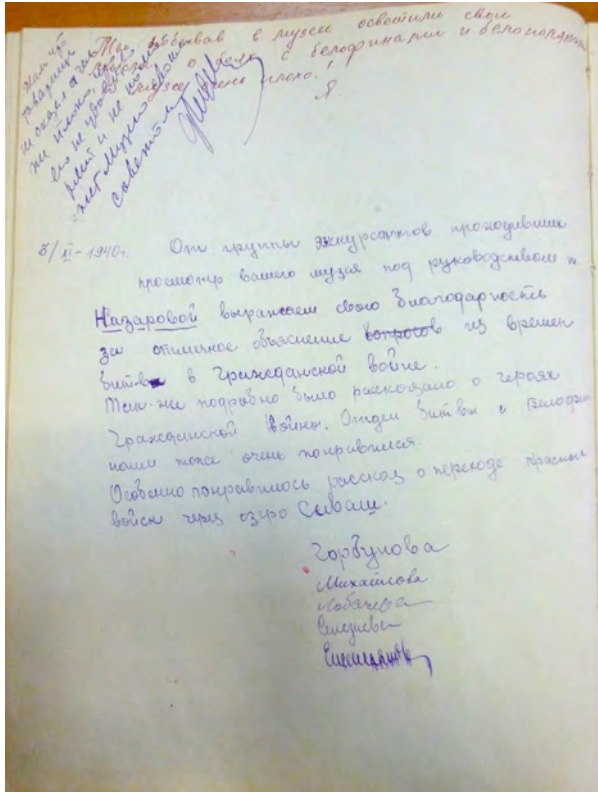 Мы побывав в музее осветили свои
о боях с белофинами и белополяками
в музее очень плохо!
Я.
Жаль что
товарищ
не сказал
же плохо,
его не удов
и не
нет музею
советом
5/XI-1940г. От группы экскурсантов проходивших
просмотр вашего музея под руководством т.
Назаровой выражаем свою благодарность
за отличное объяснение вопросов из времен
битв в Гражданской войне.
Так-же подробно было рассказано о героях
Гражданской войны. Отдел битвы с Белофи
нами тоже очень понравился.
Особенно понравилось рассказ о переходе красных
войск через озеро Сиваш.
Горбунова
Михайлова
Лобачева
Селезнева